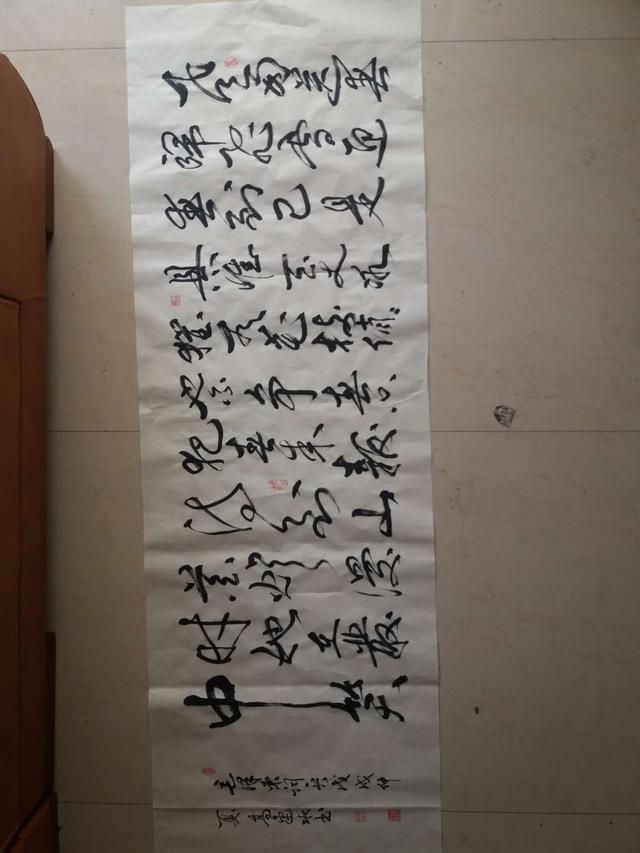 风雨送春
归飞雪迎
春到已是
悬崖百丈冰
犹有花枝俏
俏也不争春只
把春来报
待到山
花烂漫
时她在丛
中笑
毛泽东词戊戌仲
夏书